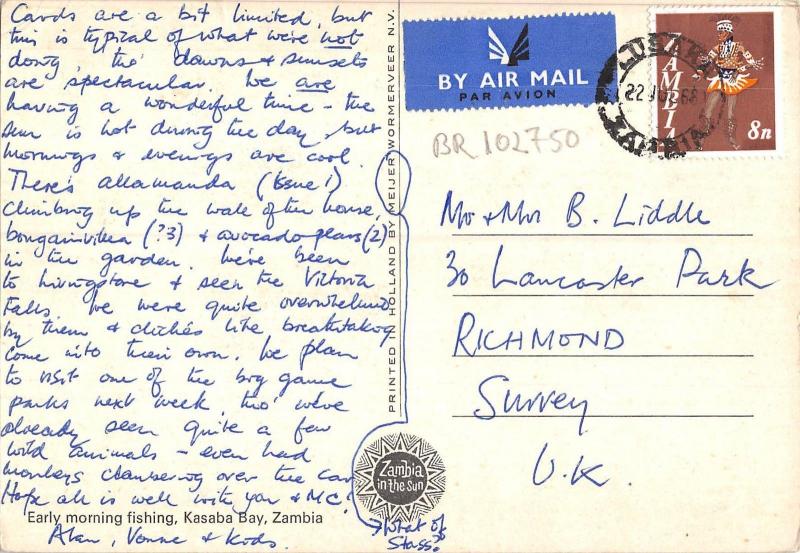 Cards are a bit limited, but
this is typical of what we're not
doing, tho' the dawns & sunsets
are spectacular. We are
having a wonderful time - the
sun is hot during the day, but
mornings & evenings are cool.
There's allamanda (issue 1)
climbing up the wall of the house,
bougainvillea (?3) & avocado pears (2)
in the garden. We've been
to Livingstone & seen the Victoria
Falls. We were quite overwhelmed
by them & clichés like breathtaking
come into their own. We plan
to visit one of the big game
parks next week, tho' we've
already seen quite a few
wild animals - even had
monkeys clambering over the car
Hope all is well with you & MC!
Early morning fishing, Kasaba Bay, Zambia
Alan, Vonne & Kids.
→What of
Stass?
PRINTED IN HOLLAND BY MEIJER WORMERVEER N.V.
Zambia
in the Sun
BY AIR MAIL
PAR AVION
LUSAKA
22 68
ZAMBIA
ZAMBIA
8n
BR 102750
Mr & Mrs B. Liddle
30 Lancaster Park
RICHMOND
Surrey
U.K.